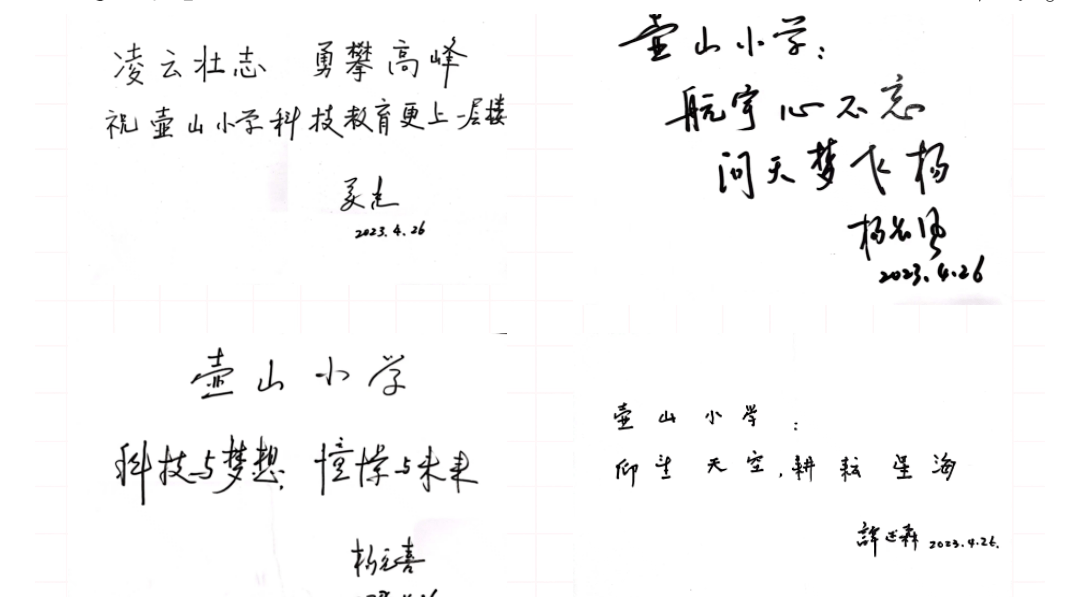 凌云壮志 勇攀高峰
祝壶山小学科技教育更上一层楼
2023.4.26
壶山小学：
航宇心不忘
问天梦飞杨
2023.4.26
壶山小学
科技与梦想，憧憬与未来
杨元喜
壶山小学：
仰望天空，耕耘星海
2023.4.26.